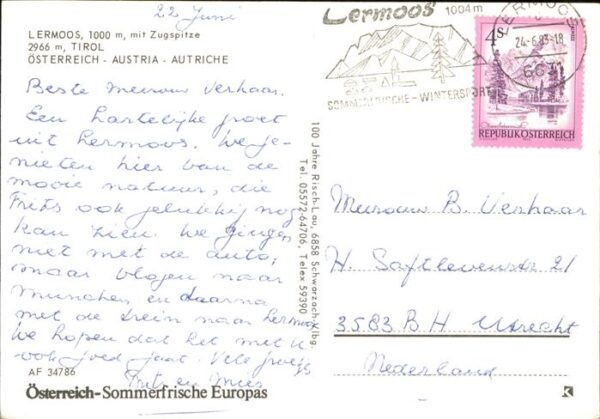 22 Juni
LERMOOS, 1000 m, mit Zugspitze
2966 m, TIROL
ÖSTERREICH - AUSTRIA - AUTRICHE
Beste Mevrouw Verhaar.
Een hartelijke groet
uit Lermoos. We ge-
nieten hier van de
mooie natuur, die
Frits ook gelukkig nog
kan zien. We gingen
niet met de auto,
maar vlogen naar
München en daarna
met de trein naar Lermoos
We hopen dat het met U
ook goed gaat. Vele groetjes
Frits en Mies
AF 34786
Österreich-Sommerfrische Europas
100 Jahre Risch-Lau, 6858 Schwarzach-Vlbg.
Tel. 05572-64706, Telex 59390
Lermoos 1004 m
SOMMERFRISCHE-WINTERSPORT
LERMOOS
24.-6.83-18
6631
4S
REPUBLIK ÖSTERREICH
Mevrouw B. Verhaar
H. Saftlevenstr 21
3583 B.H Utrecht
Nederland
K